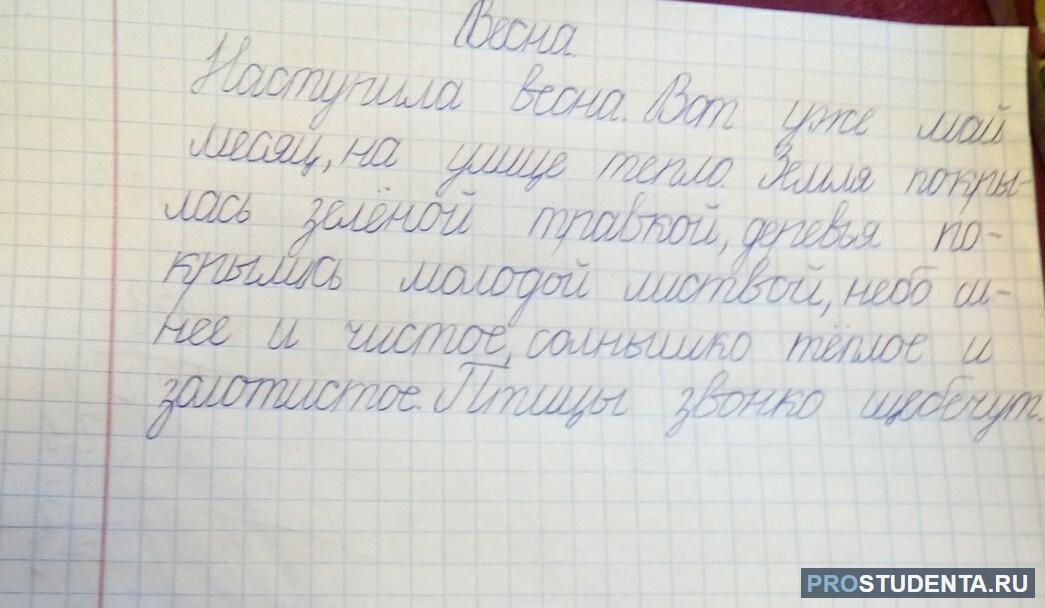 Весна.
Наступила весна. Вот уже май
месяц, на улице тепло. Земля покры-
лась зелёной травкой, деревья по-
крылись молодой листвой, небо си-
нее и чистое, солнышко тёплое и
золотистое. Птицы звонко щебечут.
PROSTUDENTA.RU